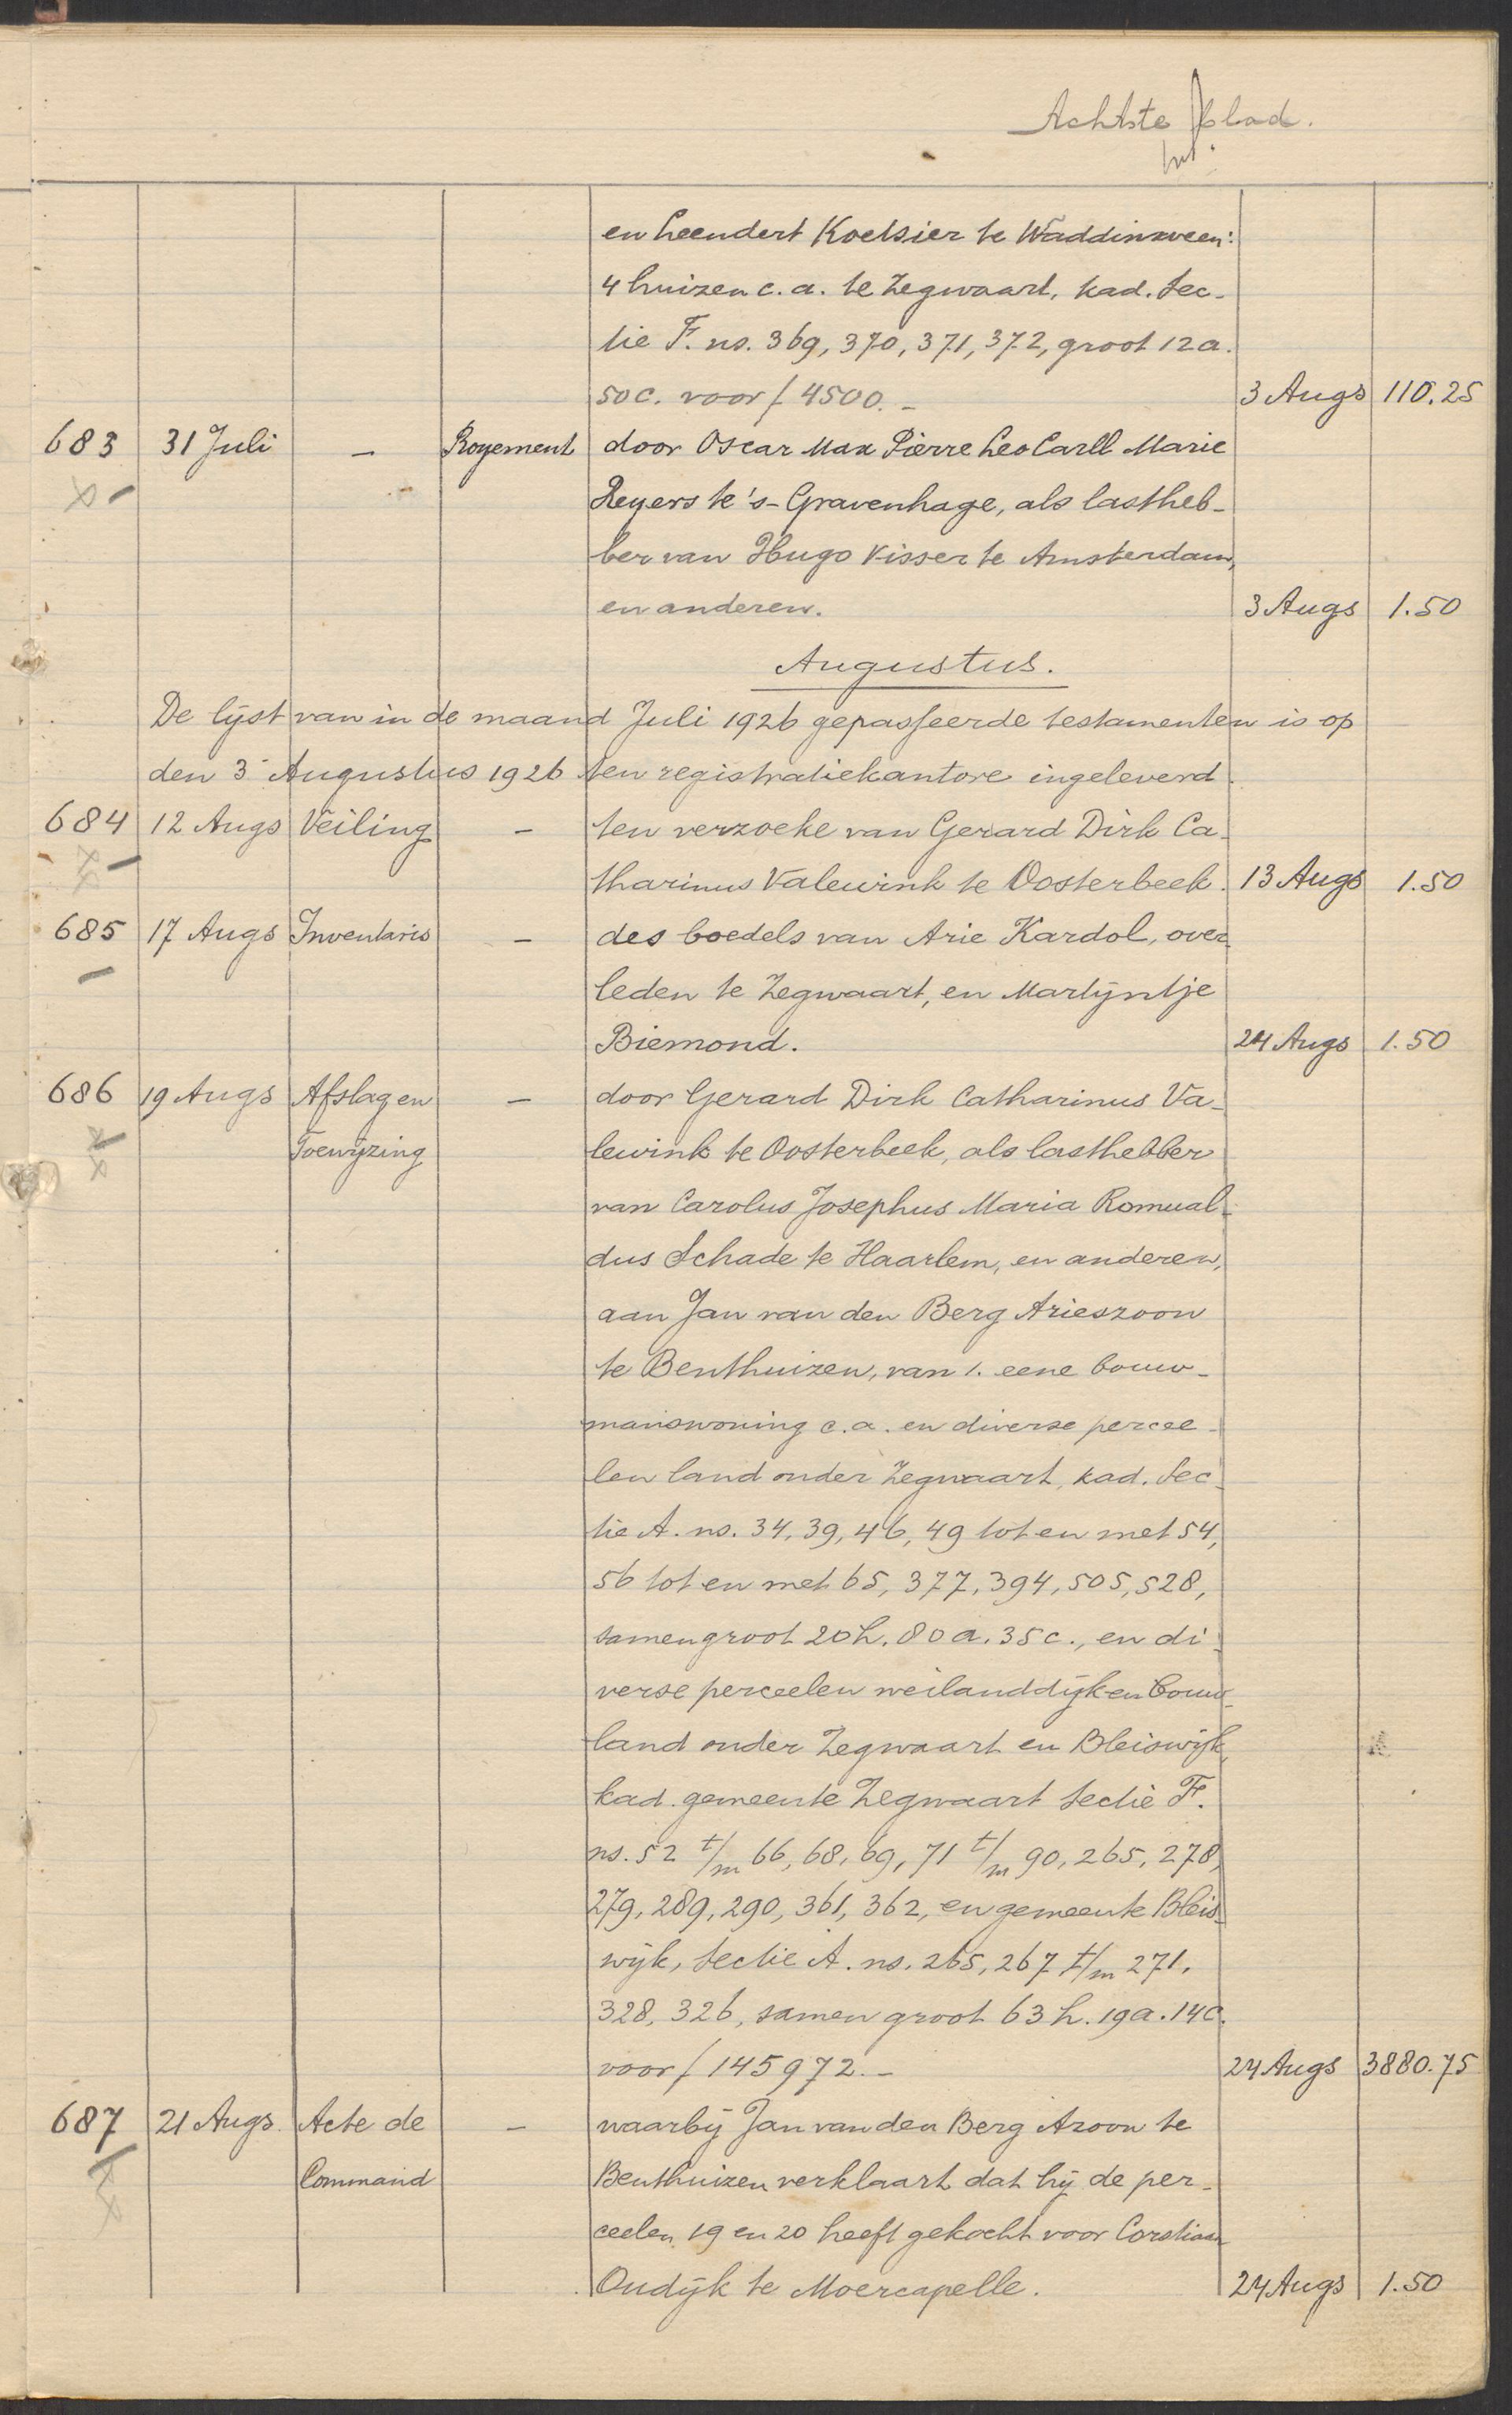 Achtste blad.
en Leendert Koetsier te Waddinxveen:
4 huizen c.a. te Zegwaart, kad. Sec-
tie F. ns. 369, 370, 371, 372, groot 12 a.
50 c. voor f 4500.- 3 Augs 110.25
683 31 Juli - Royement door Oscar Max Pierre Leo Carll Marie
Reyers te 's-Gravenhage, als lastheb-
ber van Hugo Visser te Amsterdam,
en anderen. 3 Augs 1.50
Augustus.
De lijst van in de maand Juli 1926 gepasseerde testamenten is op
den 3 Augustus 1926 ten registratiekantore ingeleverd.
684 12 Augs Veiling - ten verzoeke van Gerard Dirk Ca-
tharinus Valewink te Oosterbeek. 13 Augs 1.50
685 17 Augs Inventaris - des boedels van Arie Kardol, over-
leden te Zegwaart, en Martijntje
Biemond. 24 Augs 1.50
686 19 Augs Afslag en - door Gerard Dirk Catharinus Va-
Toewijzing lewink te Oosterbeek, als lasthebber
van Carolus Josephus Maria Romual-
dus Schade te Haarlem, en anderen,
aan Jan van den Berg Arieszoon
te Benthuizen, van 1. eene bouw-
manswoning c.a. en diverse percee-
len land onder Zegwaart, kad. Sec-
tie A. ns. 34, 39, 46, 49 tot en met 54,
56 tot en met 65, 377, 394, 505, 528,
samen groot 20 h. 80 a. 35 c., en di-
verse perceelen weiland dijk en bouw-
land onder Zegwaart en Bleiswijk,
kad. gemeente Zegwaart sectie F.
ns. 52 t/m 66, 68, 69, 71 t/m 90, 265, 278,
279, 289, 290, 361, 362, en gemeente Bleis-
wijk, sectie A. ns. 265, 267 t/m 271,
328, 326, samen groot 63 h. 19 a. 14 c.
voor f 145972.- 24 Augs 3880.75
687 21 Augs. Acte de - waarbij Jan van den Berg Azoon te
Command Benthuizen verklaart dat hij de per-
ceelen 19 en 20 heeft gekocht voor Corstiaan
Oudijk te Moercapelle. 24 Augs 1.50